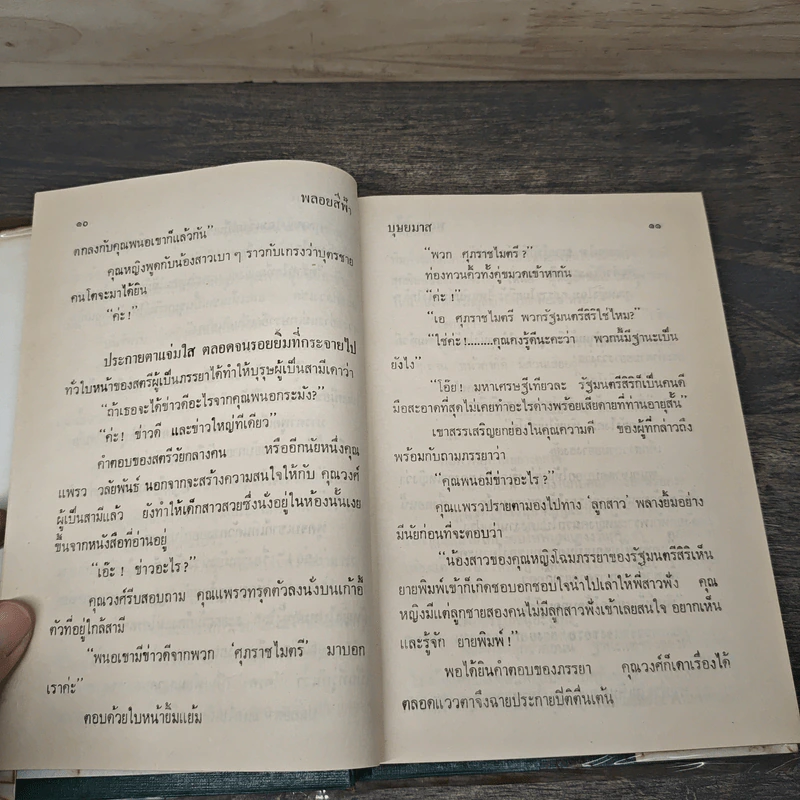 พลอยสีฟ้า
๑๐
ตกลงกับคุณพนอเขาก็แล้วกัน”
คุณหญิงพูดกับน้องสาวเบา ๆ ราวกับเกรงว่าบุตรชาย
คนโตจะมาได้ยิน
“ค่ะ!”
ประกายตาแจ่มใส ตลอดจนรอยยิ้มที่กระจายไป
ทั่วใบหน้าของสตรีผู้เป็นภรรยาได้ทำให้บุรุษผู้เป็นสามีเดาว่า
“ถ้าเธอจะได้ข่าวดีอะไรจากคุณพนอกระมัง?”
“ค่ะ! ข่าวดี และข่าวใหญ่ทีเดียว”
คำตอบของสตรีวัยกลางคน หรืออีกนัยหนึ่งคุณ
แพรว วลัยพันธ์ นอกจากจะสร้างความสนใจให้กับ คุณวงศ์
ผู้เป็นสามีแล้ว ยังทำให้เด็กสาวสวยซึ่งนั่งอยู่ในห้องนั้นเงย
ขึ้นจากหนังสือที่อ่านอยู่
“เอ๊ะ! ข่าวอะไร?”
คุณวงศ์รีบสอบถาม คุณแพรวทรุดตัวลงนั่งบนเก้าอี้
ตัวที่อยู่ใกล้สามี
“พนอเขามีข่าวดีจากพวก ‘ศุภราชไมตรี’ มาบอก
เราค่ะ”
ตอบด้วยใบหน้ายิ้มแย้ม
บุษยมาส
๑๑
“พวก ศุภราชไมตรี?”
ท่องทวนคิ้วทั้งคู่ขมวดเข้าหากัน
“ค่ะ!”
“เอ ศุภราชไมตรี พวกรัฐมนตรีสิริใช่ไหม?”
“ใช่ค่ะ!........คุณคงรู้ดีนะคะว่า พวกนี้มีฐานะเป็น
ยังไง”
“โอ๊ย! มหาเศรษฐีเทียวละ รัฐมนตรีสิริก็เป็นคนดี
มือสะอาดที่สุดไม่เคยทำอะไรด่างพร้อยเสียดายที่ท่านอายุสั้น”
เขาสรรเสริญยกย่องในคุณความดี ของผู้ที่กล่าวถึง
พร้อมกับถามภรรยาว่า
“คุณพนอมีข่าวอะไร?”
คุณแพรวปรายตามองไปทาง ‘ลูกสาว’ พลางยิ้มอย่าง
มีนัยก่อนที่จะตอบว่า
“น้องสาวของคุณหญิงโฉมภรรยาของรัฐมนตรีสิริเห็น
ยายพิมพ์เข้าก็เกิดชอบอกชอบใจนำไปเล่าให้พี่สาวฟัง คุณ
หญิงมีแต่ลูกชายสองคนไม่มีลูกสาวฟังเข้าเลยสนใจ อยากเห็น
และรู้จัก ยายพิมพ์!”
พอได้ยินคำตอบของภรรยา คุณวงศ์ก็เดาเรื่องได้
ตลอดแววตาจึงฉายประกายปีติตื่นเต้น